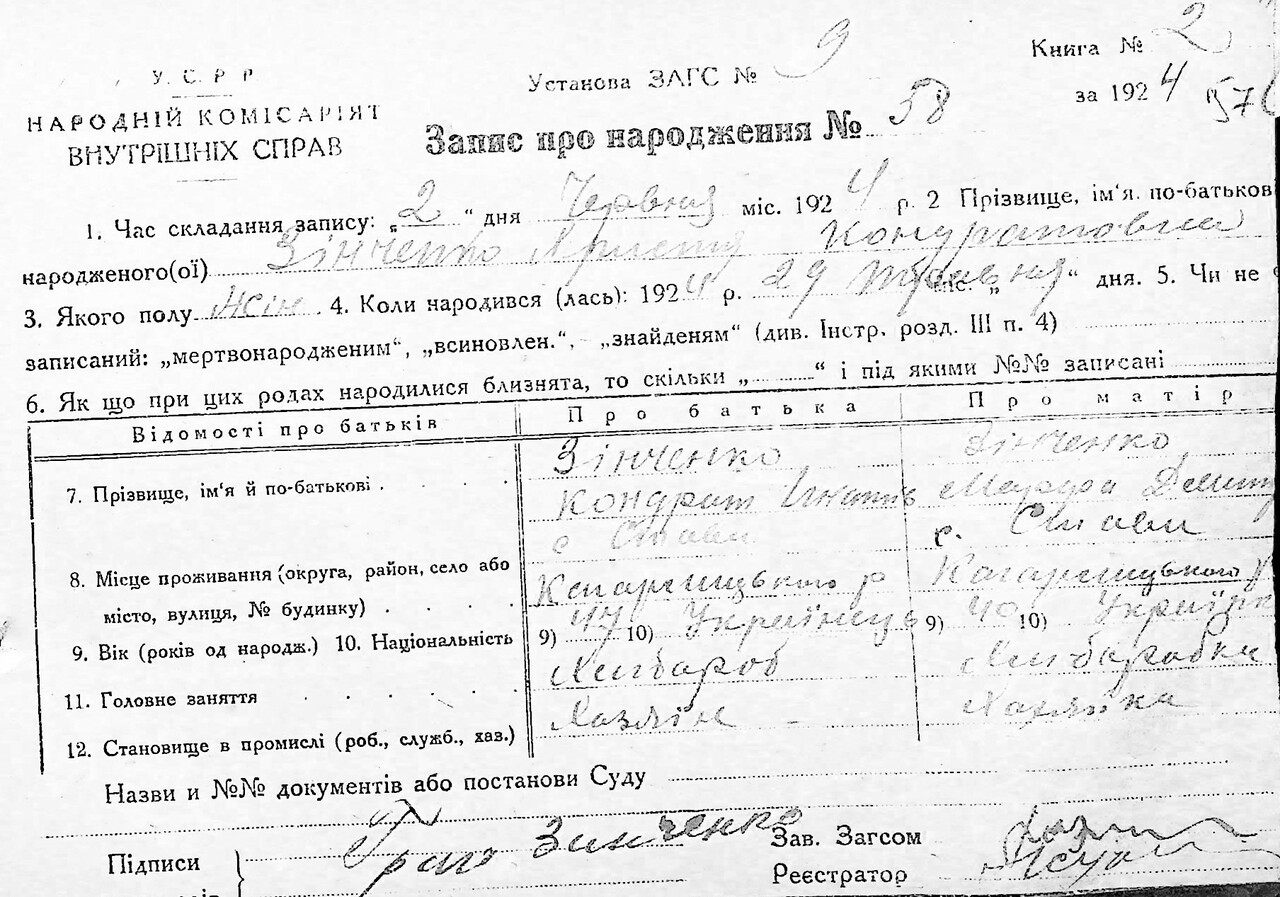 У. С. Р. Р
НАРОДНІЙ КОМІСАРІЯТ
ВНУТРІШНІХ СПРАВ
Установа ЗАГС № 9
Книга № 2
за 1924
Запис про народження № 58
1. Час складання запису: „2“ дня Червня міс. 1924 р. 2 Прізвище, ім‘я по-батькові
народженого(ої) Зінченко Кондратовна
3. Якого полу жін. 4. Коли народився (лась): 1924 р. 29 Травня міс. „ “ дня. 5. Чи не
записаний: „мертвонародженим“, „всиновлен.“, „знайденям“ (див. Інстр. розд. III п. 4)
6. Як що при цих родах народилися близнята, то скільки „ “ і під якими №№ записані
Відомості про батьків Про батька Про матір
7. Прізвище, ім‘я й по-батькові Зінченко Зінченко
Кондрат Ігнатів Марфа Дмитр
с Стави с. Стави
8. Місце проживання (округа, район, село або
місто, вулиця, № будинку) Кагарлицького р Кагарлицького р
9. Вік (років од народж.) 10. Національність 9) 47 10) Українець 9) 40 10) Українка
11. Головне заняття Хлібороб Хлібаробка
12. Становище в промислі (роб., служб., хаз.) Хазяїн Хазяйка
Назви и №№ документів або постанови Суду
Підписи Зинченко
Зав. Загсом
Реєстратор